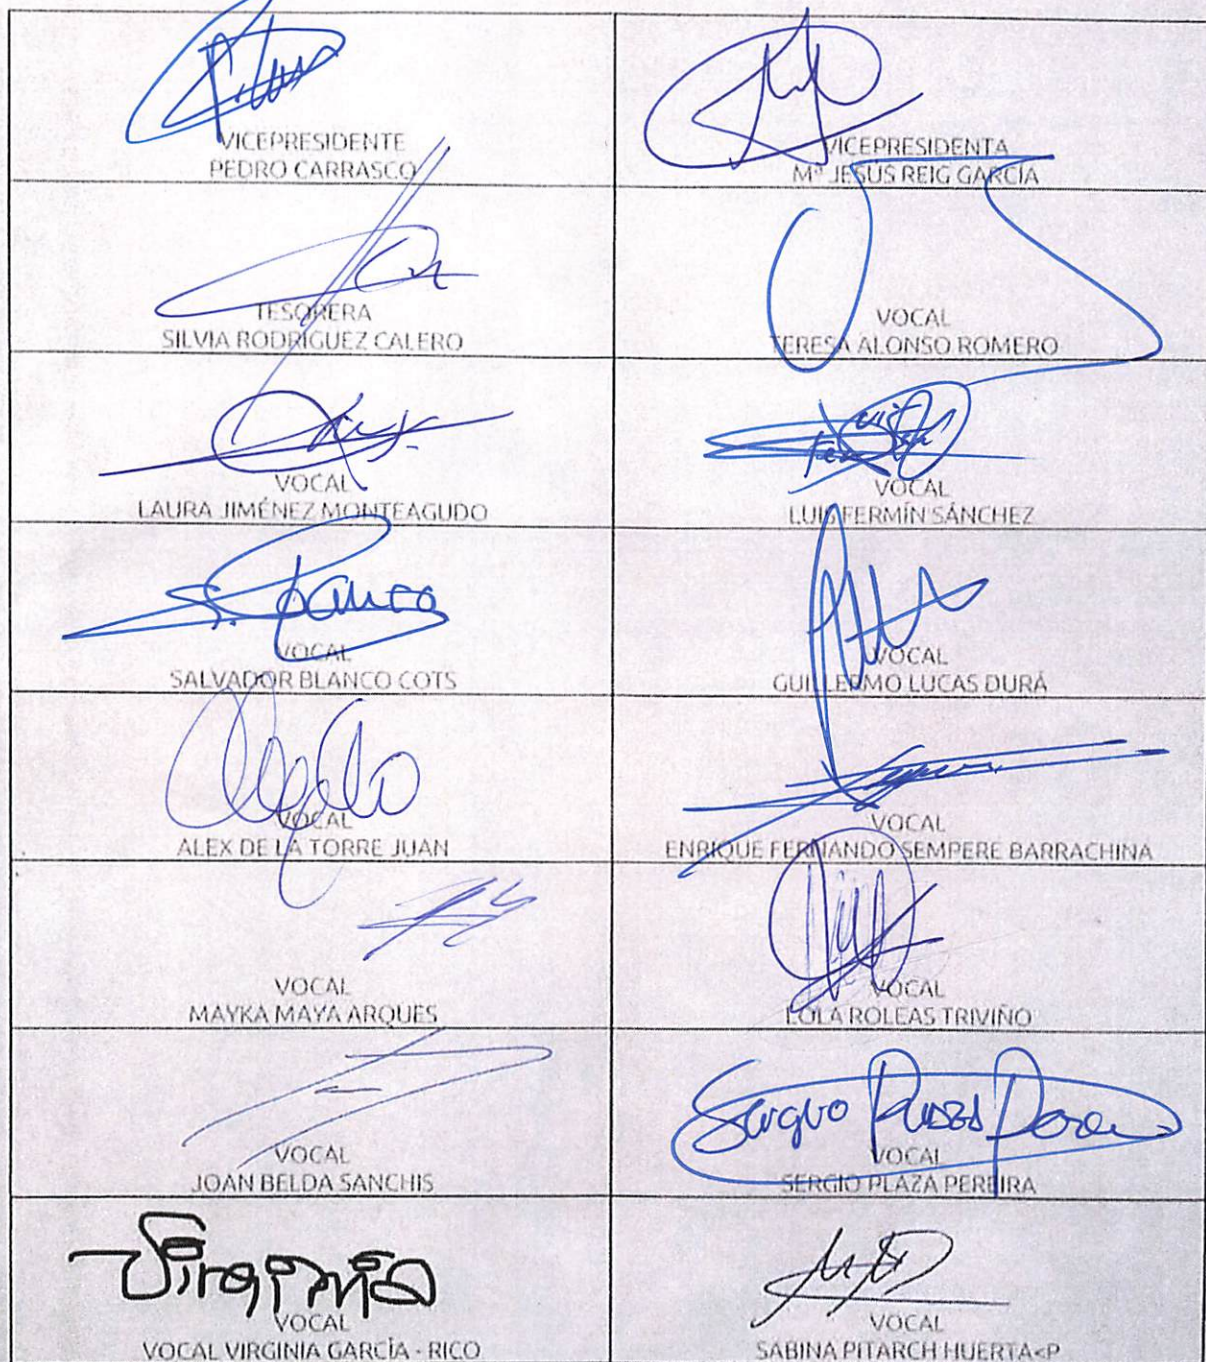 VICEPRESIDENTE
PEDRO CARRASCO
VICEPRESIDENTA
Mª JESÚS REIG GARCÍA
TESORERA
SILVIA RODRÍGUEZ CALERO
VOCAL
TERESA ALONSO ROMERO
VOCAL
LAURA JIMÉNEZ MONTEAGUDO
VOCAL
LUIS FERMÍN SÁNCHEZ
S. Blanco
VOCAL
SALVADOR BLANCO COTS
VOCAL
GUILLERMO LUCAS DURÁ
VOCAL
ALEX DE LA TORRE JUAN
VOCAL
ENRIQUE FERNANDO SEMPERE BARRACHINA
VOCAL
MAYKA MAYA ARQUES
VOCAL
LOLA ROLEAS TRIVIÑO
VOCAL
JOAN BELDA SANCHIS
Sergio
VOCAL
SERGIO PLAZA PEREIRA
Virginia
VOCAL
VOCAL VIRGINIA GARCÍA - RICO
VOCAL
SABINA PITARCH HUERTA<P